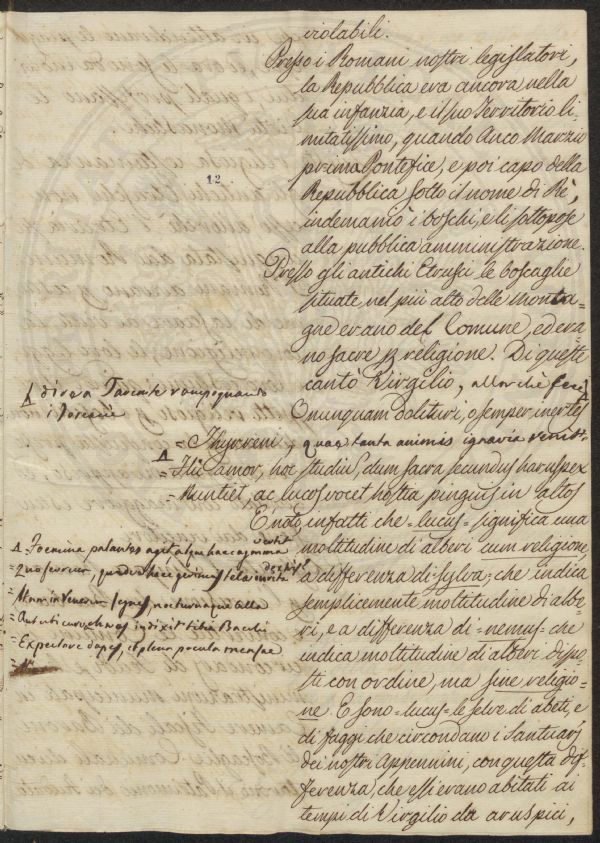 violabili.
Presso i Romani nostri legislatori,
la Repubblica era ancora nella
sua infanzia, e il suo Territorio li=
mitatissimo, quando Anco Marzio
prima Pontefice, e poi capo della
Repubblica sotto il nome di Rè,
indemaniò i boschi, e li sottopose
alla pubblica amministrazione.
12
Presso gli antichi Etrusci le boscaglie
situate nel più alto delle monta=
gne erano del Comune, ed era
no sacre p religione. Di queste
cantò Virgilio, allorchè fece
Δ dire a Tarconte rampognando
i Toscani
O nunquam dolituri, o semper inertes
= Thyrreni, quae tanta animis ignavia venit
Δ
= Hic amor, hoc studium, dum sacra secundus haruspex
= Nuntiet, ac lucos vocet hostia pinguis in altos
È noto infatti che = lucus = significa una
moltitudine di alberi cum religione,
a differenza di = sylva, che indica
semplicemente moltitudine di albe=
ri, e a differenza di = nemus = che
indica moltitudine di alberi dispo=
sti con ordine, ma sine religio=
ne. E sono = lucus = le selve di abeti, e
di faggi che circondano i Santuarj
dei nostri Appennini, con questa dif=
ferenza, che essi erano abitati ai
tempi di Virgilio da aruspici,
Δ = Foemina palantes agit, atque haec agmina
vertit
= Quo ferrum, quidve haec gerimus tela irrita
dextris?
= At non in Venerem segnes, nocturnaque bella
= Aut ubi curva choros indixit tibia Bacchi
= Expectare dapes, et plena pocula mensae